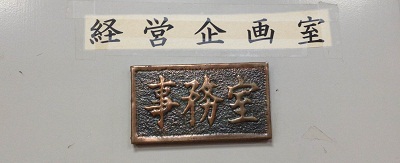 経営企画室
事務室